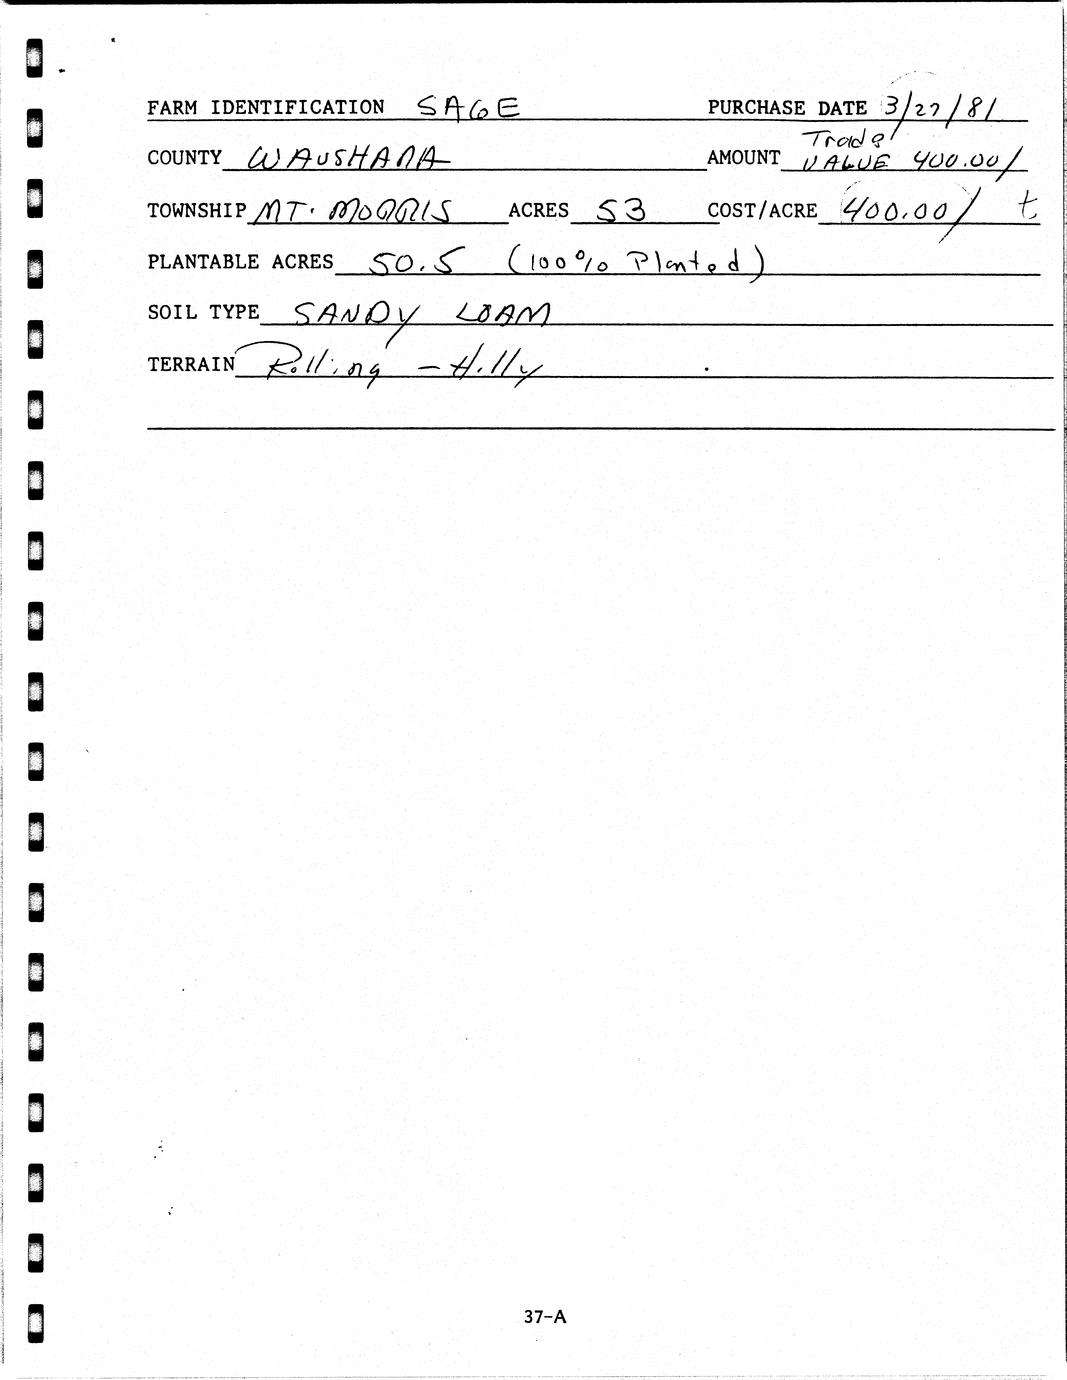 FARM IDENTIFICATION SAGE PURCHASE DATE 3/27/81
COUNTY WAUSHARA AMOUNT Trade VALUE 400.00/
TOWNSHIP MT. MORRIS ACRES 53 COST/ACRE 400.00/ t
PLANTABLE ACRES 50.5 (100% Planted)
SOIL TYPE SANDY LOAM
TERRAIN Rolling - Hilly
37-A